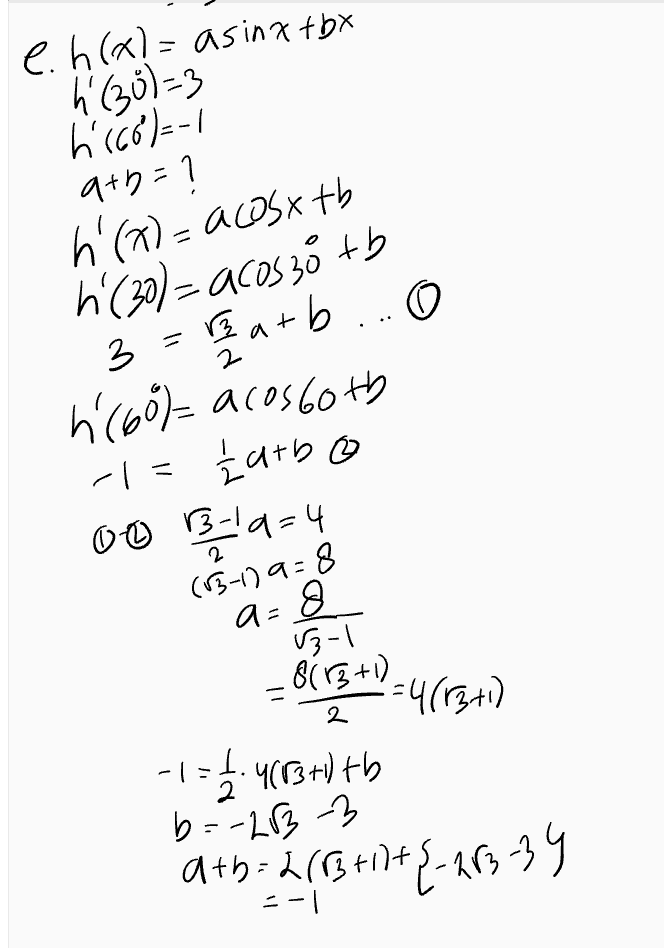 e. h(x) = asinx+bx
h'(30°)=3
h'(60°)=-1
a+b=?
h'(x) = acosx+b
h'(30)= acos30° +b
3 = √3/2 a+b ... ①
h'(60°)= acos60+b
-1 = 1/2 a+b ②
①-② (√3-1)/2 a=4
(√3-1) a=8
a= 8/(√3-1)
= 8(√3+1)/2 =4(√3+1)
-1=1/2. 4(√3+1)+b
b=-2√3 -3
a+b=2(√3+1)+{-2√3-3}
=-1